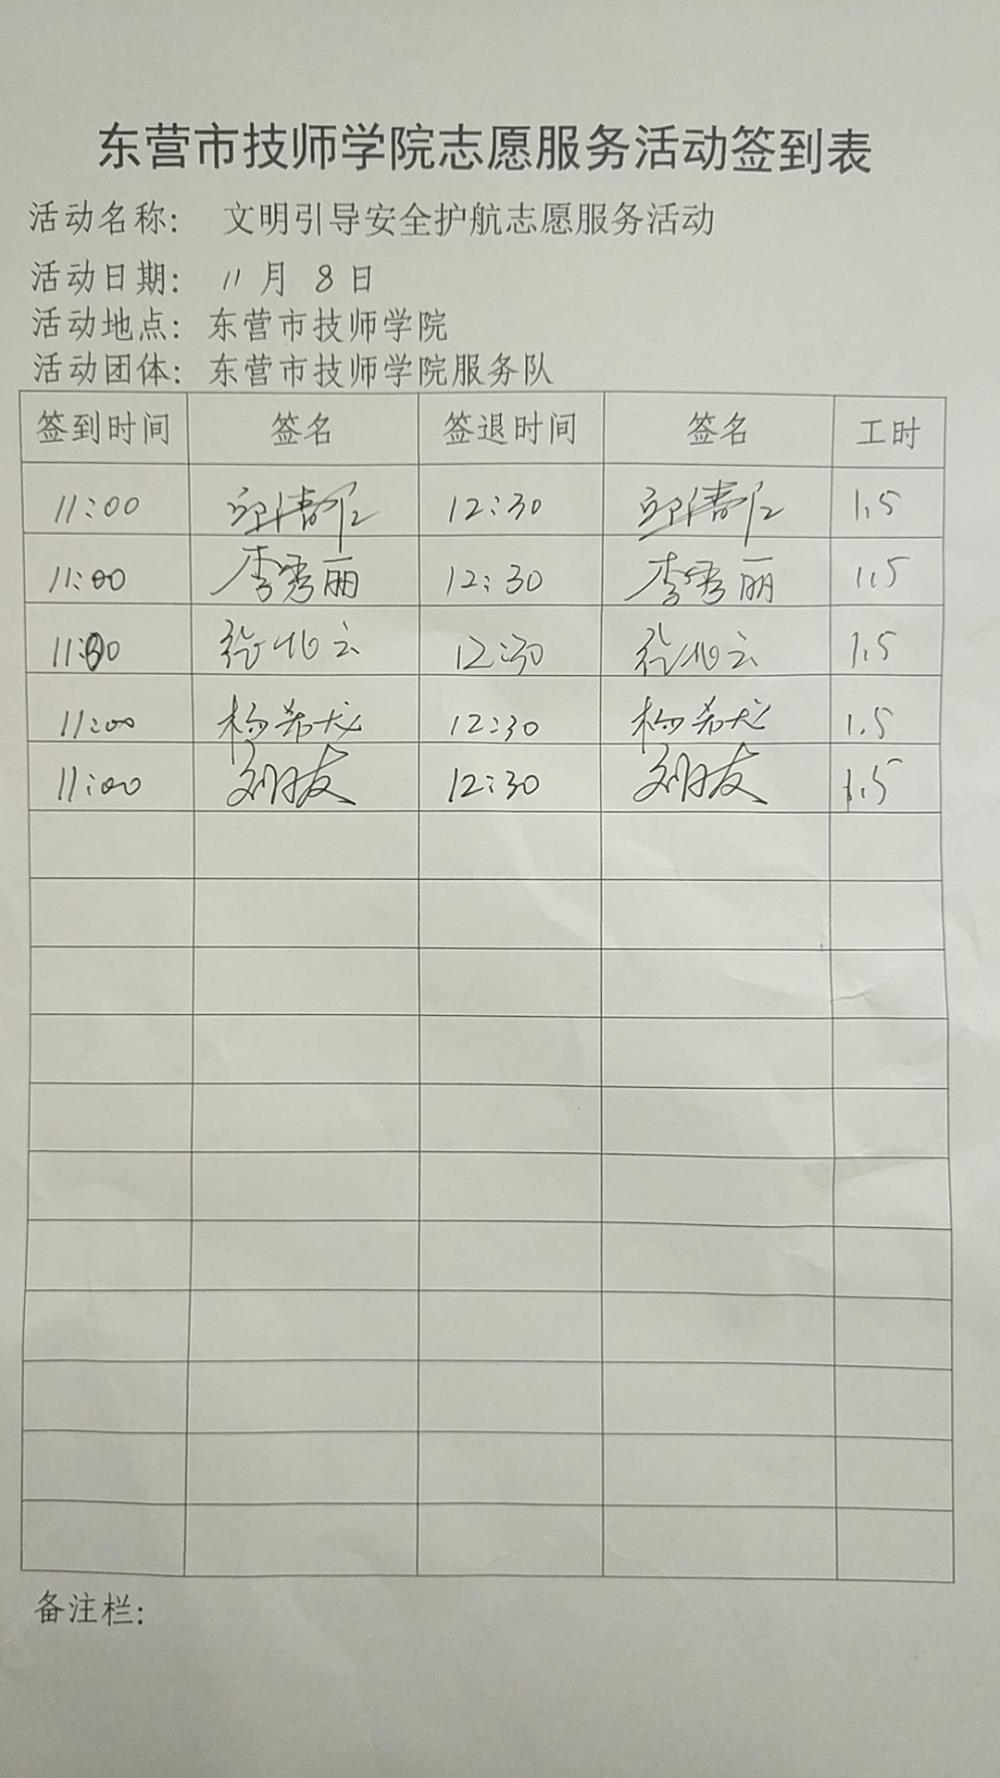 东营市技师学院志愿服务活动签到表
活动名称： 文明引导安全护航志愿服务活动
活动日期： 11 月 8 日
活动地点： 东营市技师学院
活动团体： 东营市技师学院服务队
签到时间 签名 签退时间 签名 工时
11:00 12:30 1.5
11:00 李秀丽 12:30 李秀丽 1.5
11:00 12:30 1.5
11:00 杨希龙 12:30 杨希龙 1.5
11:00 刘友 12:30 刘友 1.5
备注栏：